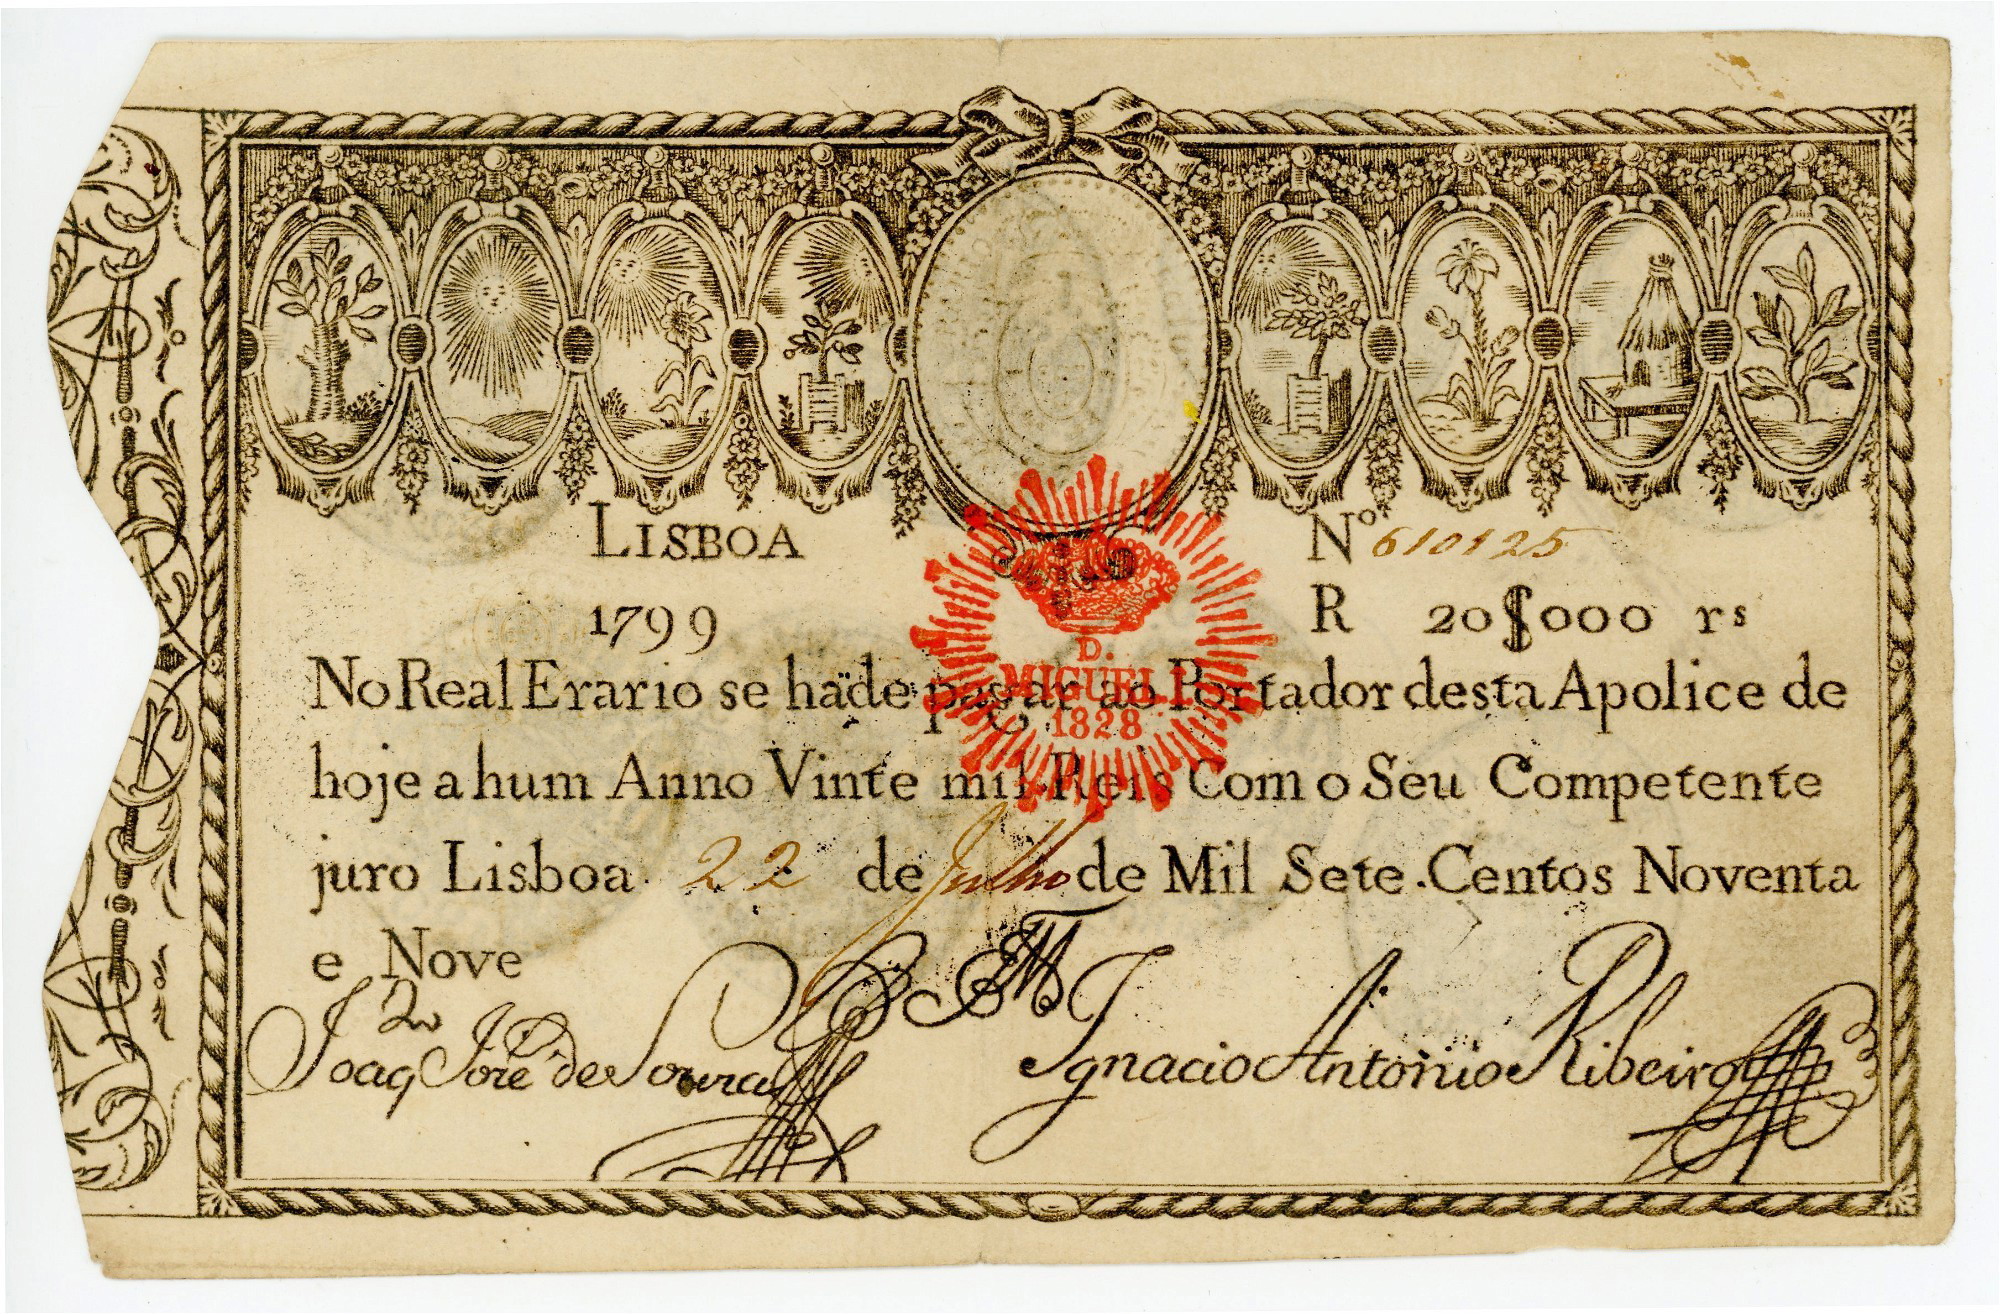 LISBOA
Nº 610125
1799
R 20$000 rs
No Real Erario se häde pagar ao Portador desta Apolice de
hoje a hum Anno Vinte mil Reis Com o Seu Competente
juro Lisboa 22 de Julho de Mil Sete Centos Noventa
e Nove
D.
MIGUEL
1828
Joaq Joze de Souza
Ignacio Antonio Ribeiro